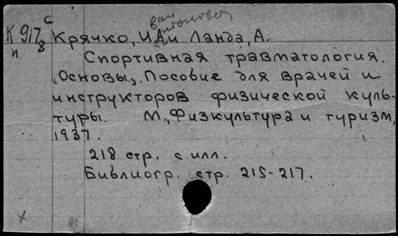 К 917 с
8
п
Крячко, И.А. и Ланда, А.
Спортивная травматология.
(Основы). Пособие для врачей и
инструкторов физической куль-
туры. М., "Физкультура и туризм",
1937.
218 стр. с илл.
Библиогр. стр. 215-217.